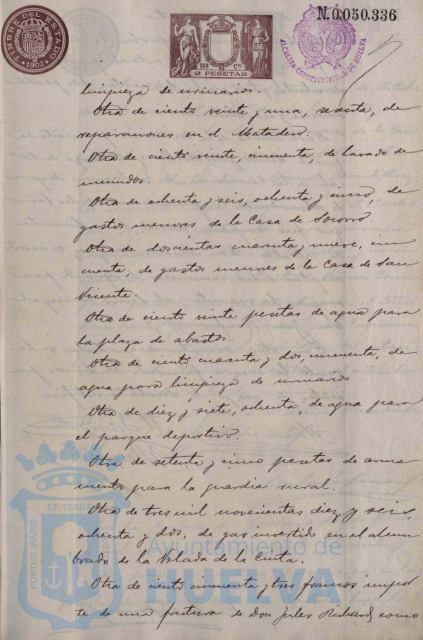 TIMBRE DEL ESTADO
1902
2 PESETAS
N.0.050.336
ALCALDIA CONSTITUCIONAL DE HUELVA
limpieza de urinarios.
Otra de ciento veinte y una, sesenta, de
reparaciones en el Matadero.
Otra de ciento veinte, cincuenta, de lavado de
menudos.
Otra de ochenta y seis, ochenta y cinco, de
gastos menores de la Casa de Socorro.
Otra de doscientas cuarenta y nueve, cin
cuenta, de gastos menores de la Casa de San
Vicente.
Otra de ciento veinte pesetas de agua para
la plaza de abastos.
Otra de ciento cuarenta y dos, cincuenta, de
agua para limpieza de urinarios
Otra de diez y siete, ochenta, de agua para
el parque deportivo.
Otra de setenta y cinco pesetas de arma
mento para la guardia rural.
Otra de tres mil novecientas diez y seis,
ochenta y dos, de gas invertido en el alum
brado de la Velada de la Cinta.
Otra de ciento cincuenta y tres francos impor
te de una factura de Don Jules Richard, como
PORTUS MARIS ET TERRAE
Ayuntamiento de
HUELVA